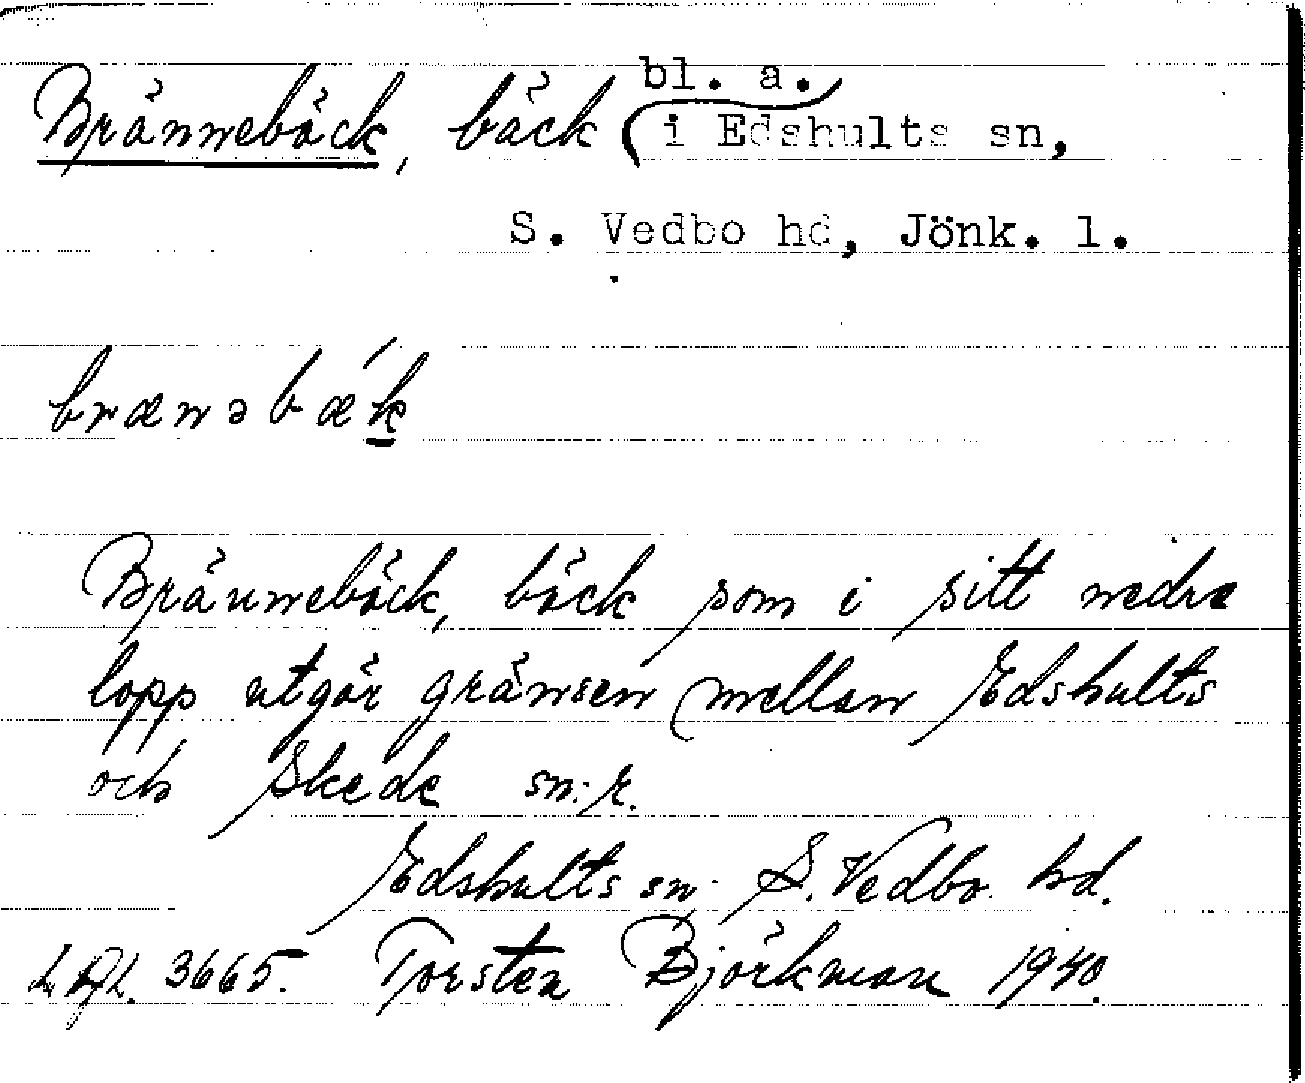 bl. a.
Brännebäck, bäck (i Edshults sn,
S. Vedbo hd, Jönk. l.
brænəbǽk
Brännebäck, bäck som i sitt nedre
lopp utgör gränsen mellan Edshults
och Skede sn:r.
Edshults sn. S. Vedbo hd.
3665. Torsten Björkman 1940.